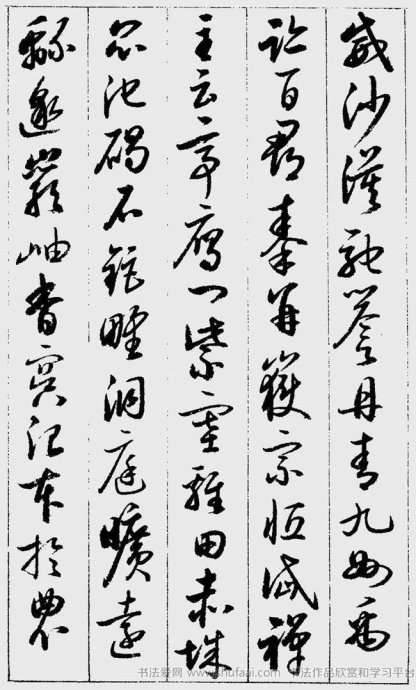 威沙漠馳譽丹青九州禹
跡百郡秦并嶽宗恒岱禪
主云亭鴈門紫塞雞田赤城
昆池碣石鉅野洞庭曠遠
緜邈巖岫杳冥治本於農
书法爱网 www.shufaai.com 书法作品欣赏和学习平台